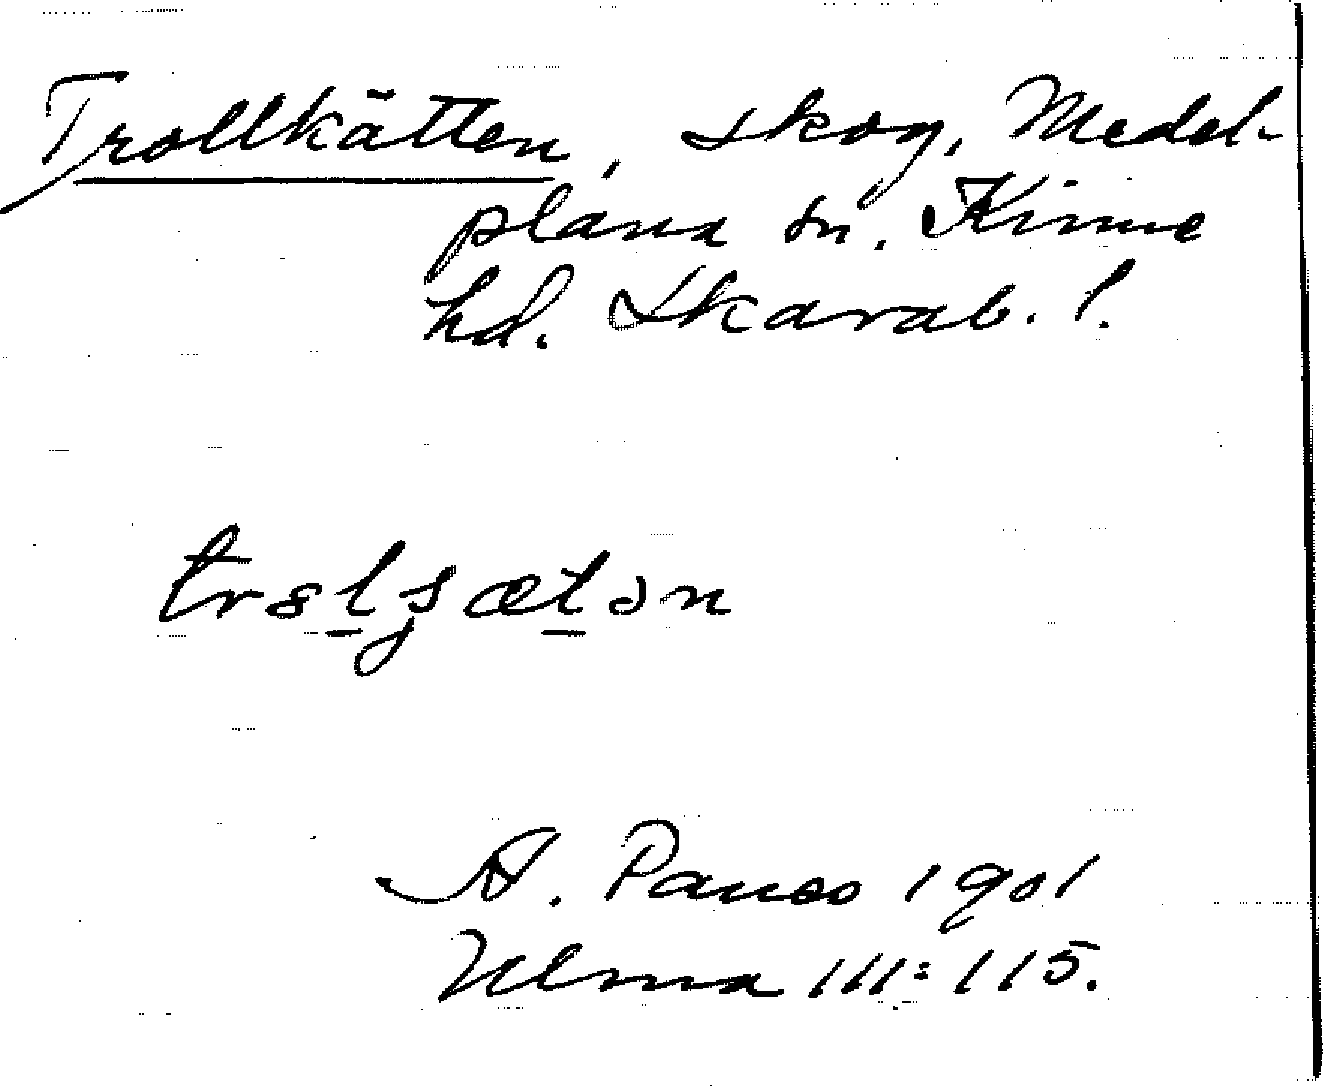 Trollkätten, skog, Medel-
plana sn. Kinne
hd. Skarab. l.
A. Pauss 1901
Ulma 111:115.